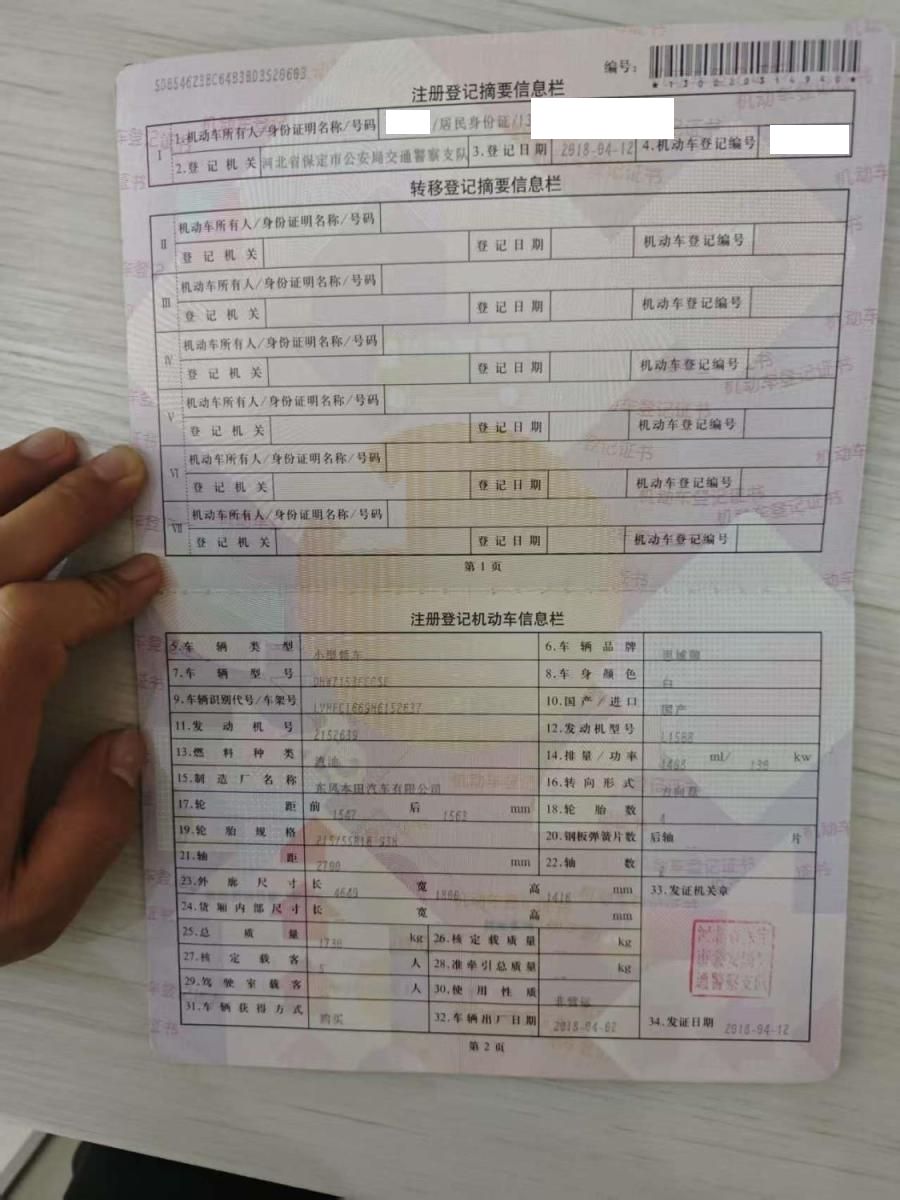 编号：
注册登记摘要信息栏
I 1.机动车所有人/身份证明名称/号码 /居民身份证/13
2.登记机关 河北省保定市公安局交通警察支队 3.登记日期 2018-04-12 4.机动车登记编号
转移登记摘要信息栏
II 机动车所有人/身份证明名称/号码
登记机关 登记日期 机动车登记编号
III 机动车所有人/身份证明名称/号码
登记机关 登记日期 机动车登记编号
IV 机动车所有人/身份证明名称/号码
登记机关 登记日期 机动车登记编号
V 机动车所有人/身份证明名称/号码
登记机关 登记日期 机动车登记编号
VI 机动车所有人/身份证明名称/号码
登记机关 登记日期 机动车登记编号
VII 机动车所有人/身份证明名称/号码
登记机关 登记日期 机动车登记编号
第1页
注册登记机动车信息栏
5.车辆类型 小型轿车 6.车辆品牌 思域牌
7.车辆型号 8.车身颜色 白
9.车辆识别代号/车架号 10.国产/进口 国产
11.发动机号 2152639 12.发动机型号
13.燃料种类 汽油 14.排量/功率 ml/ kw
15.制造厂名称 东风本田汽车有限公司 16.转向形式 方向盘
17.轮距 前 1547 后 1563 mm 18.轮胎数 4
19.轮胎规格 20.钢板弹簧片数 后轴 片
21.轴距 2700 mm 22.轴数 2
23.外廓尺寸 长 4649 宽 1800 高 1416 mm 33.发证机关章
24.货厢内部尺寸 长 宽 高 mm
25.总质量 1730 kg 26.核定载质量 kg
27.核定载客 5 人 28.准牵引总质量 kg
29.驾驶室载客 人 30.使用性质 非营运
31.车辆获得方式 购买 32.车辆出厂日期 2018-04-02 34.发证日期 2018-04-12
第2页